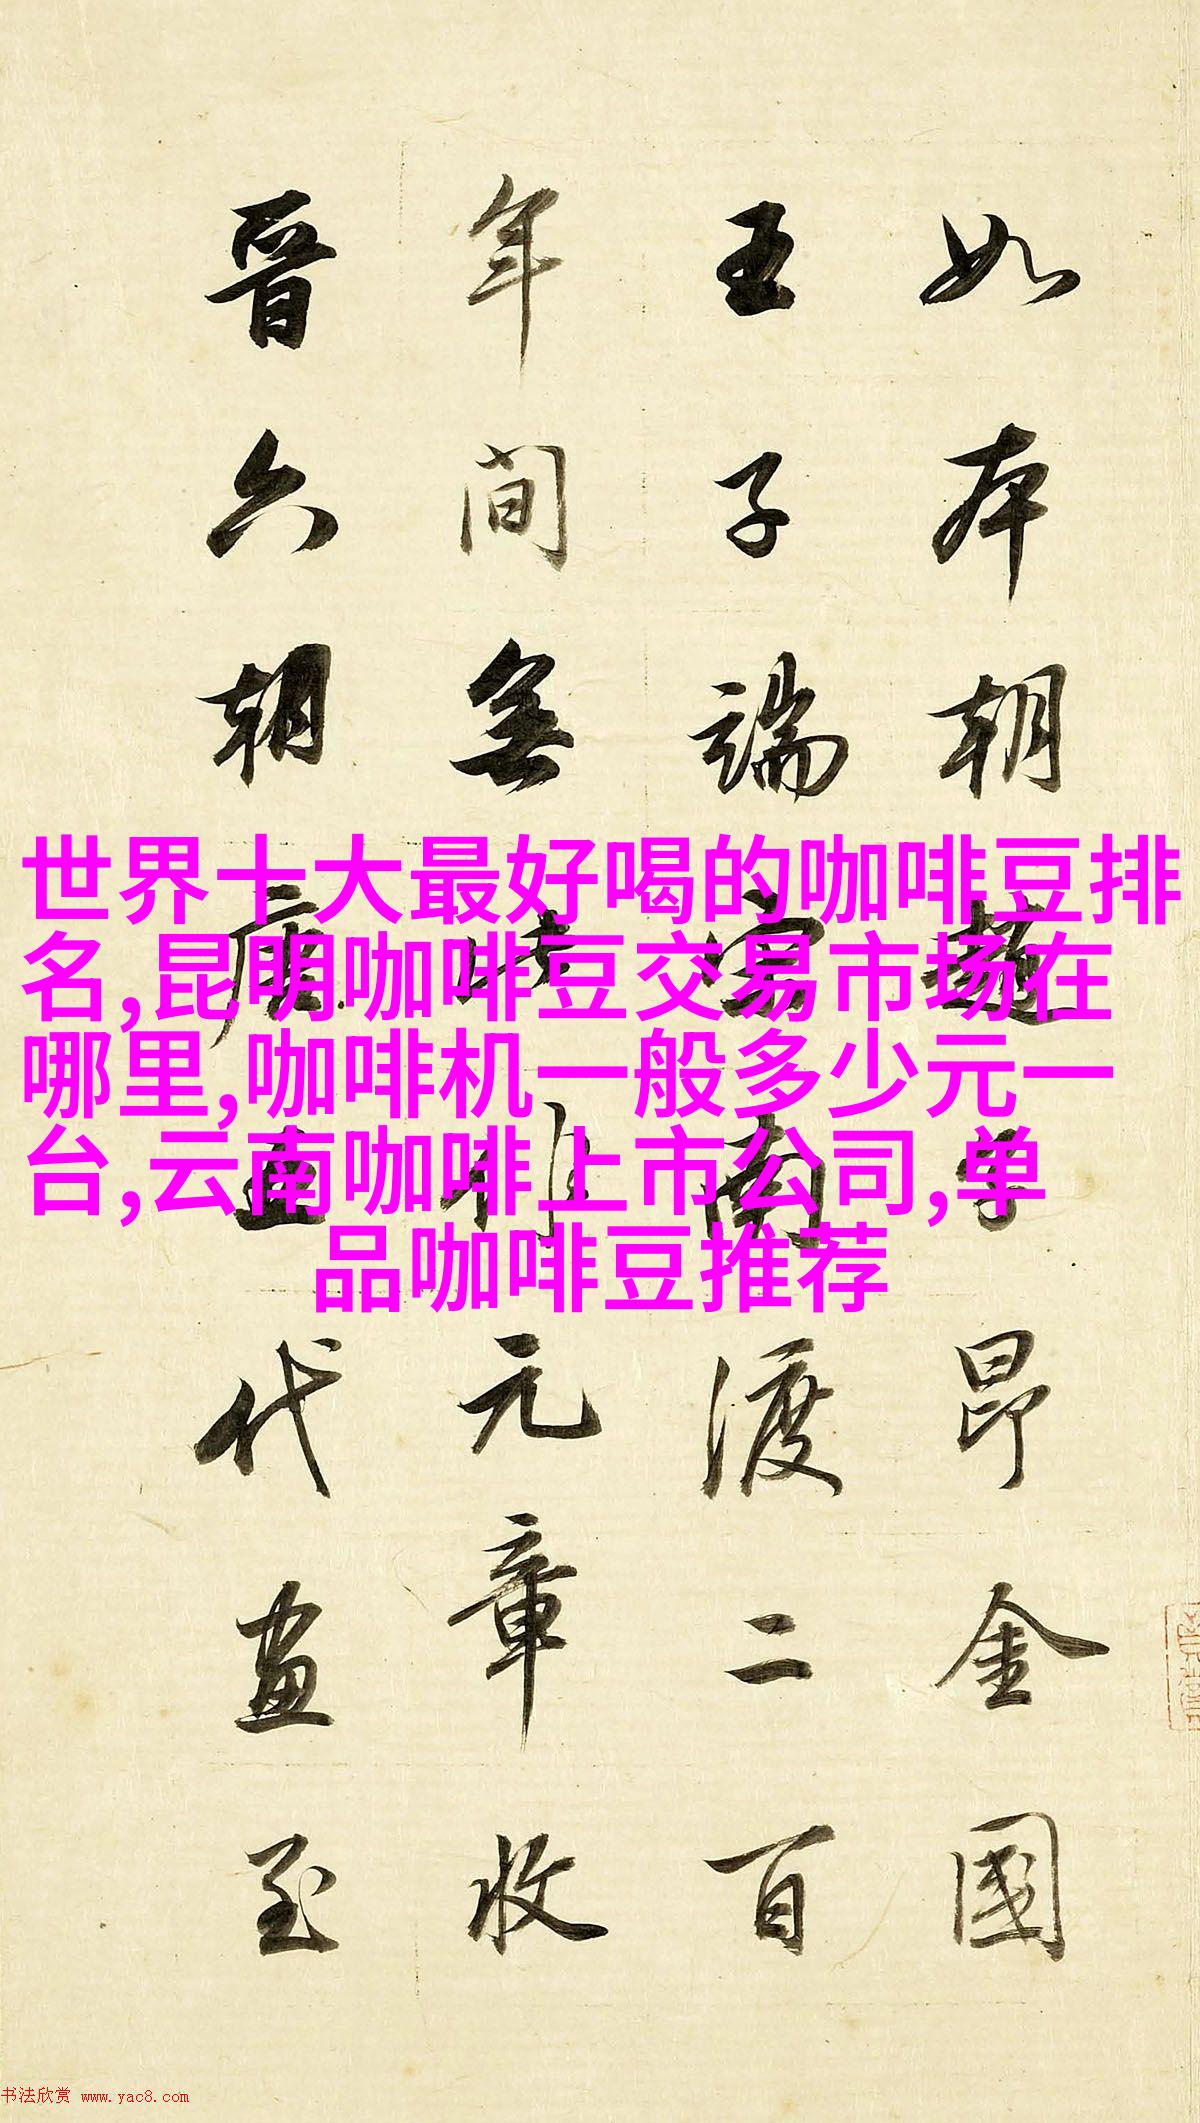 如本朝趙子昂金國
王子端宋南渡二百
年間無此元章收
晉六朝唐五代畫至
世界十大最好喝的咖啡豆排
名,昆明咖啡豆交易市场在
哪里,咖啡机一般多少元一
台,云南咖啡上市公司,单
品咖啡豆推荐
书法欣赏 www.yac8.com